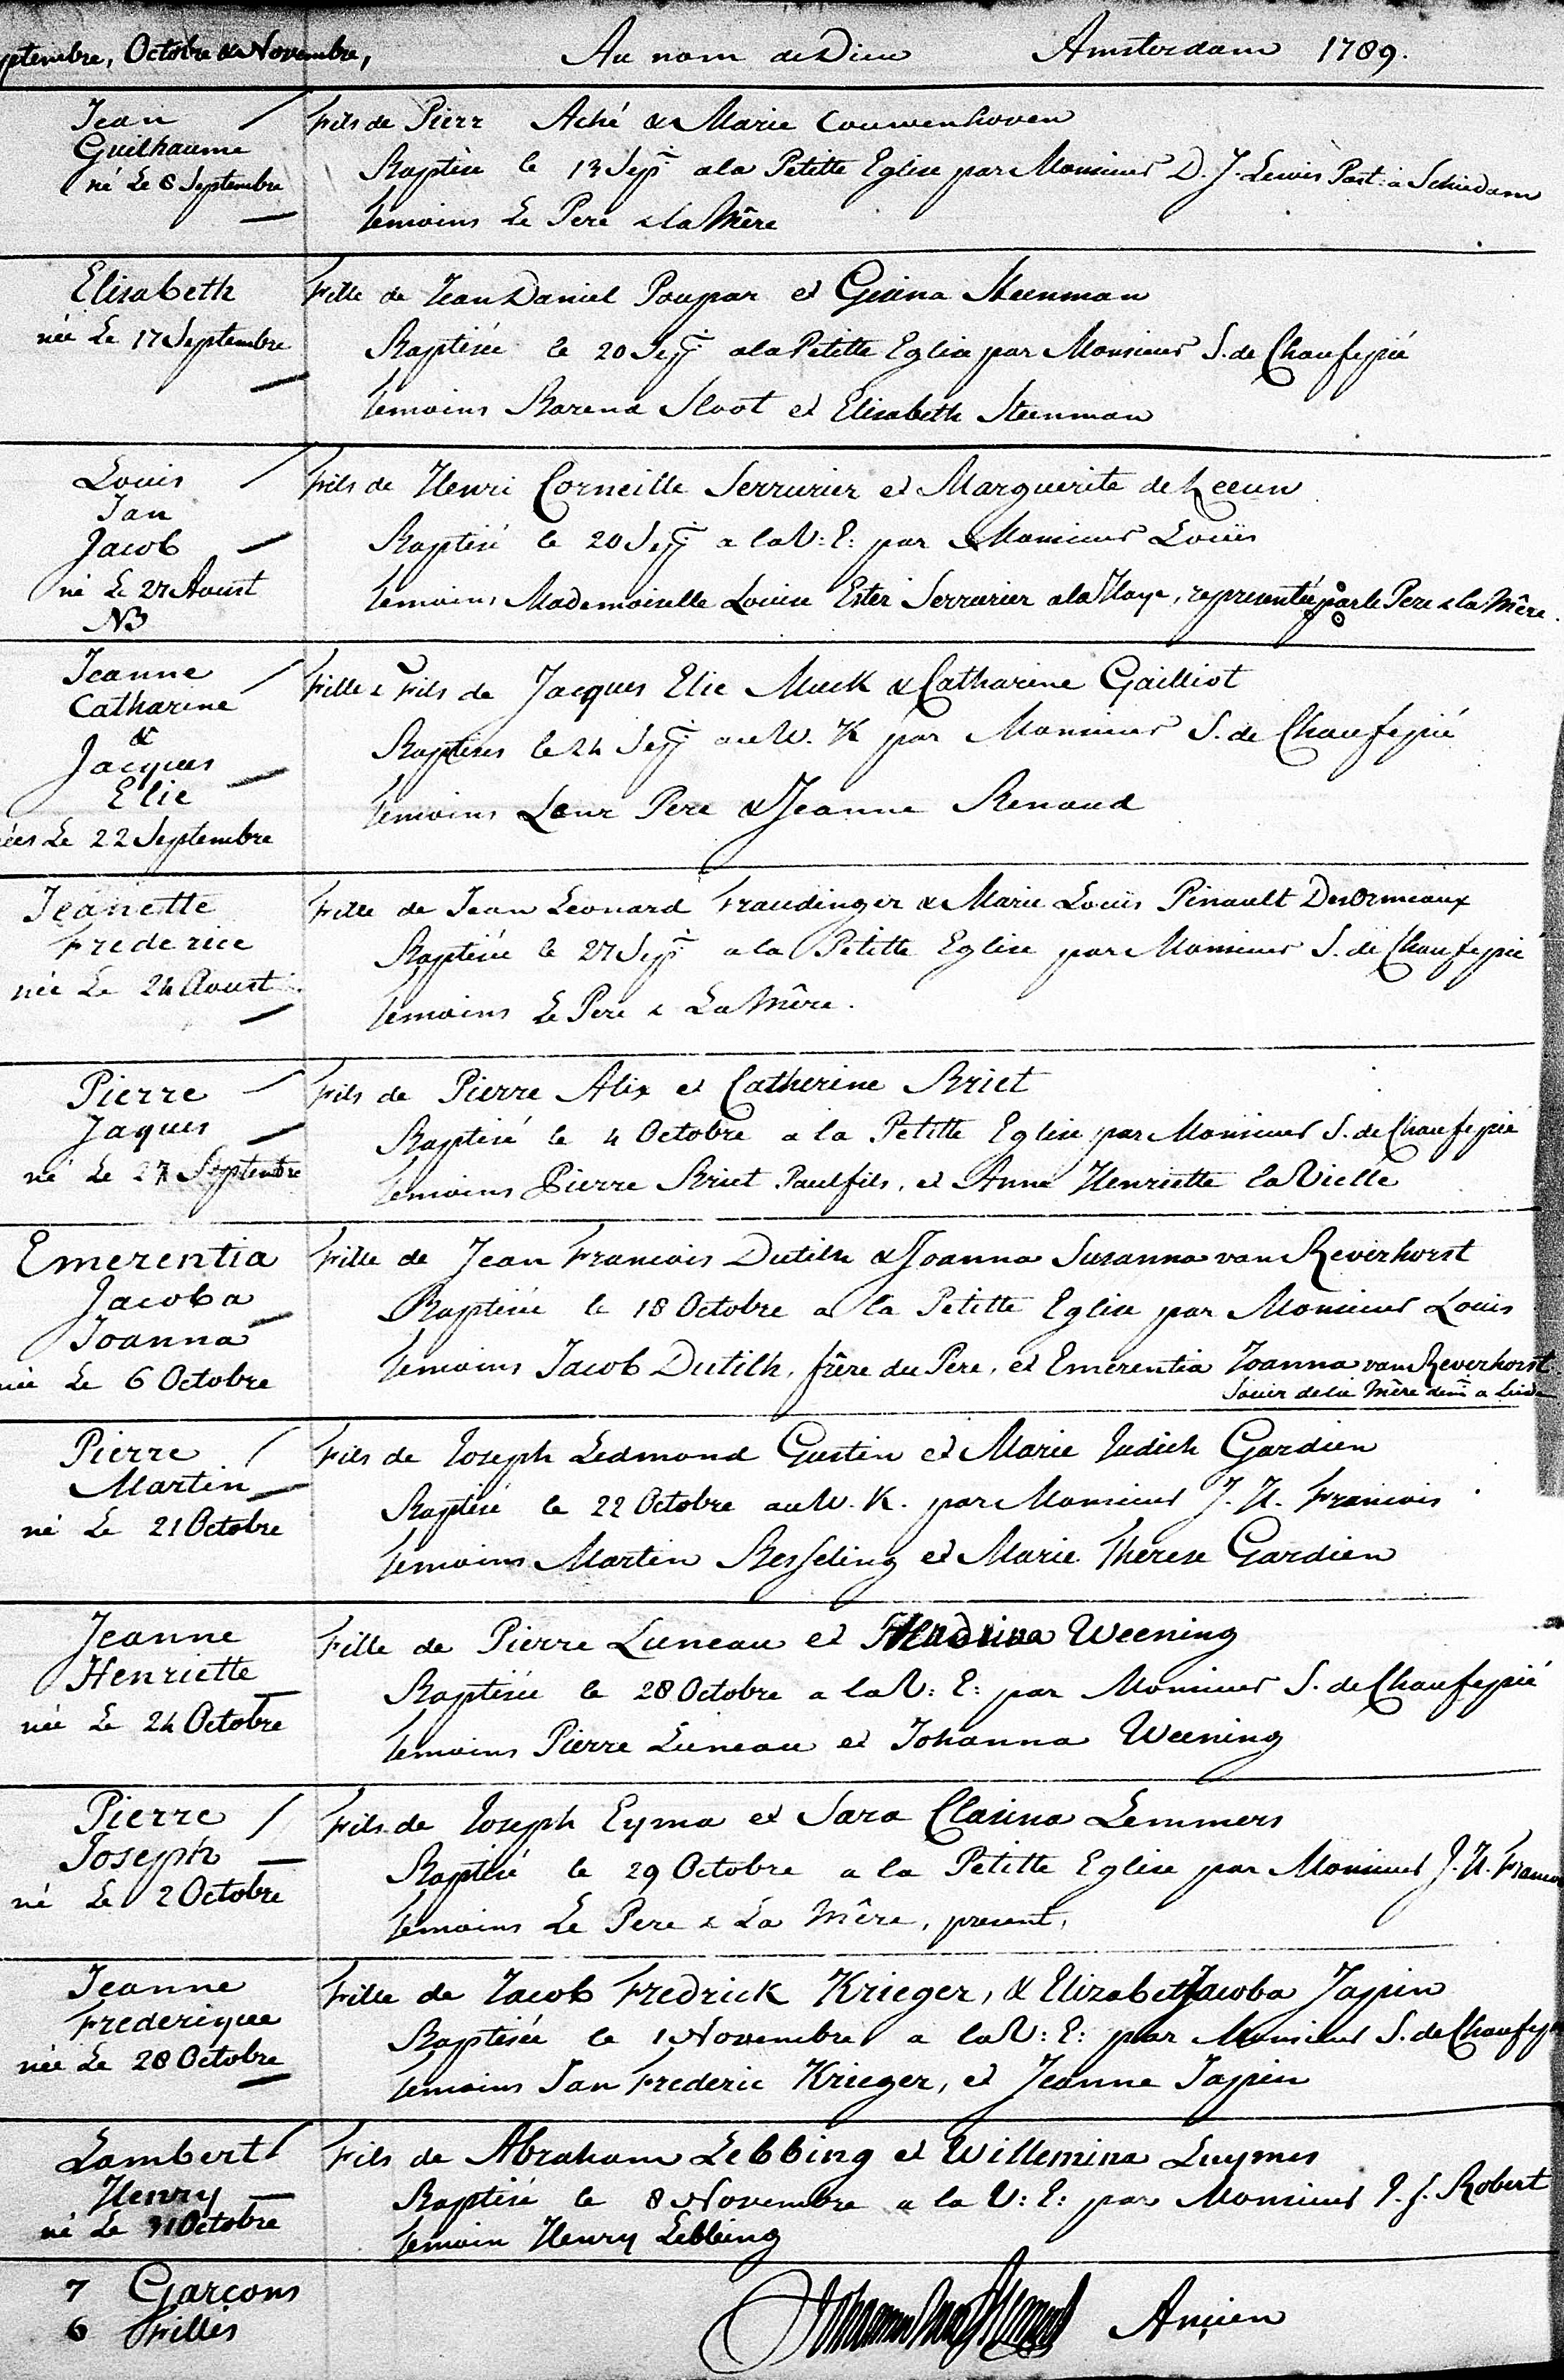 ptembre, Octobre & Novembre, Au nom de Dieu Amsterdam 1789.
Jean
Guilhaume
né Le 8 Septembre
Fils de Pierr Aché & Marie Couwenhoven
Baptisé le 13 Sepr. a la Petitte Eglise par Monsieur D. J. Lewis Past: a Schiedam
temoins Le Pere & la Mêre
Elisabeth
née Le 17 Septembre
Fille de Jean Daniel Poupar et Gesina Steenman
Baptisée le 20 Sepr. a la Petitte Eglise par Monsieur S. de Chaufepié
temoins Barend Sloot et Elisabeth Steenman
Louis
Jan
Jacob
né Le 27 Aoust
NB
Fils de Henri Corneille Serrurier et Marguerite de Leeuw
Baptisé le 20 Sepr. a la V: E: par Monsieur Louis
temoins Mademoiselle Louise Ester Serrurier a la Haye, representée par le Pere & la Mêre.
Jeanne
Catharine
&
Jacques
Elie
ées Le 22 Septembre
Fille & Fils de Jacques Elie Muck & Catharine Gailliot
Baptises le 24 Sepr. au W. K par Monsieur S. de Chaufepié
temoins Leur Pere & Jeanne Renaud
Jeanette
Frederice
née Le 24 Aoust
Fille de Jean Leonard Fraudinger & Marie Louis Pinault Desormeaux
Baptisée le 27 Sepr. a la Petitte Eglise par Monsieur S. de Chaufepié
temoins Le Pere & La Mêre.
Pierre
Jaques
né Le 27 Septembre
Fils de Pierre Alix et Catherine Briet
Baptisé le 4 Octobre a la Petitte Eglise par Monsieur S. de Chaufepié
temoins Pierre Briet Paulfils, et Anne Henriette la Vielle
Emerentia
Jacoba
Joanna
née Le 6 Octobre
Fille de Jean Francois Dutilh & Joanna Susanna van Reverhorst
Baptisée le 18 Octobre a la Petitte Eglise par Monsieur Louis
temoins Jacob Dutilh, frêre du Pere, et Emerentia Joanna van Reverhorst.
Soeur de la Mêre dem: a Leide
Pierre
Martin
né Le 21 Octobre
Fils de Joseph Ledmond Gustin et Marie Judich Gardien
Baptisé le 22 Octobre au W. K. par Monsieur J. H. Francois
temoins Martin Besseling et Marie Therese Gardien
Jeanne
Henriette
née Le 24 Octobre
Fille de Pierre Luneau et Hendrina Weening
Baptisée le 28 Octobre a la V: E: par Monsieur S. de Chaufepié
temoins Pierre Luneau et Johanna Weening
Pierre
Joseph
né Le 2 Octobre
Fils de Joseph Eyma et Sara Clasina Lemmers
Baptisé le 29 Octobre a la Petitte Eglise par Monsieur J. H. Francois
temoins Le Pere & La Mêre, present,
Jeanne
Frederique
née Le 28 Octobre
Fille de Jacob Fredrick Krieger, & Elizabeth Jacoba Jappin
Baptisée le 1 Novembre a la V: E: par Monsieur S. de Chaufepi
temoins Jan Frederic Krieger, et Jeanne Jappin
Lambert
Henry
né Le 31 Octobre
Fils de Abraham Lebbing et Willemina Luymes
Baptisé le 8 Novembre a la V: E: par Monsieur P. J. Robert
temoin Henry Lebbing
7 Garçons
6 Filles
Ançien